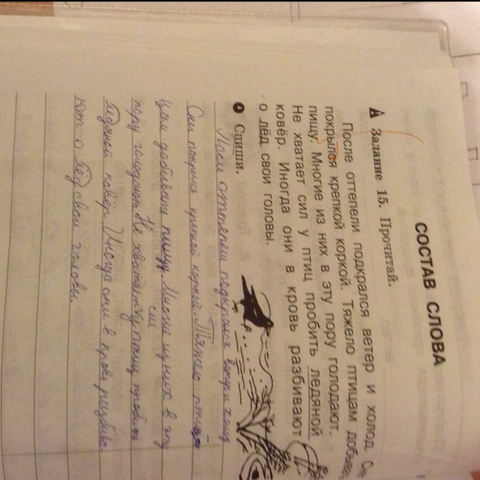 СОСТАВ СЛОВА
А Задание 15. Прочитай.
После оттепели подкрался ветер и холод.
покрылся крепкой коркой. Тяжело птицам
пищу. Многие из них в эту пору голодают.
Не хватает сил у птиц пробить ледяной
ковёр. Иногда они в кровь разбивают
о лёд свои головы.
Спиши.
оттепели подкрался ветер и холод
крепкой коркой. Тяжело
пищу. Многие из них в эту
пору голодают. Не хватает
сил
ковёр. Иногда они в кровь
о лед свои головы